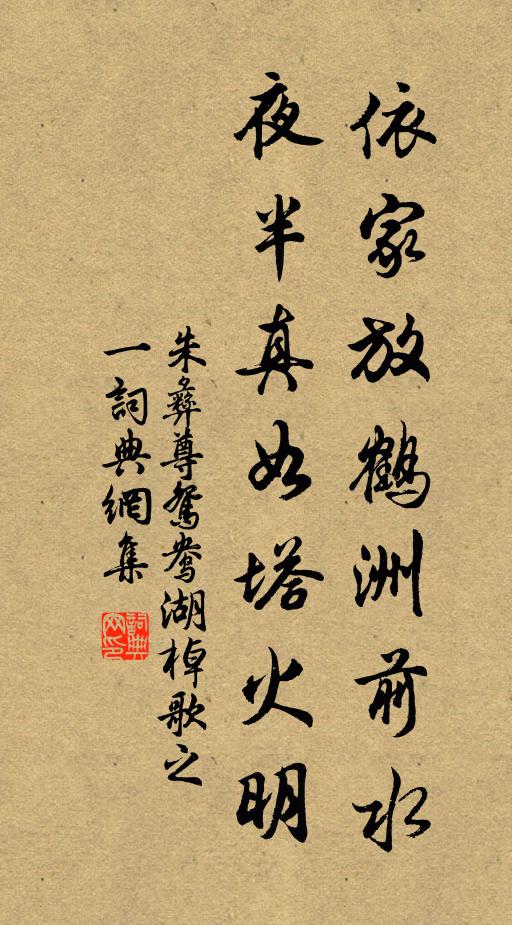 依家放鶴洲前水
夜半真如塔火明
朱彝尊鴛鴦湖棹歌之
一詞典網集
詞典網印